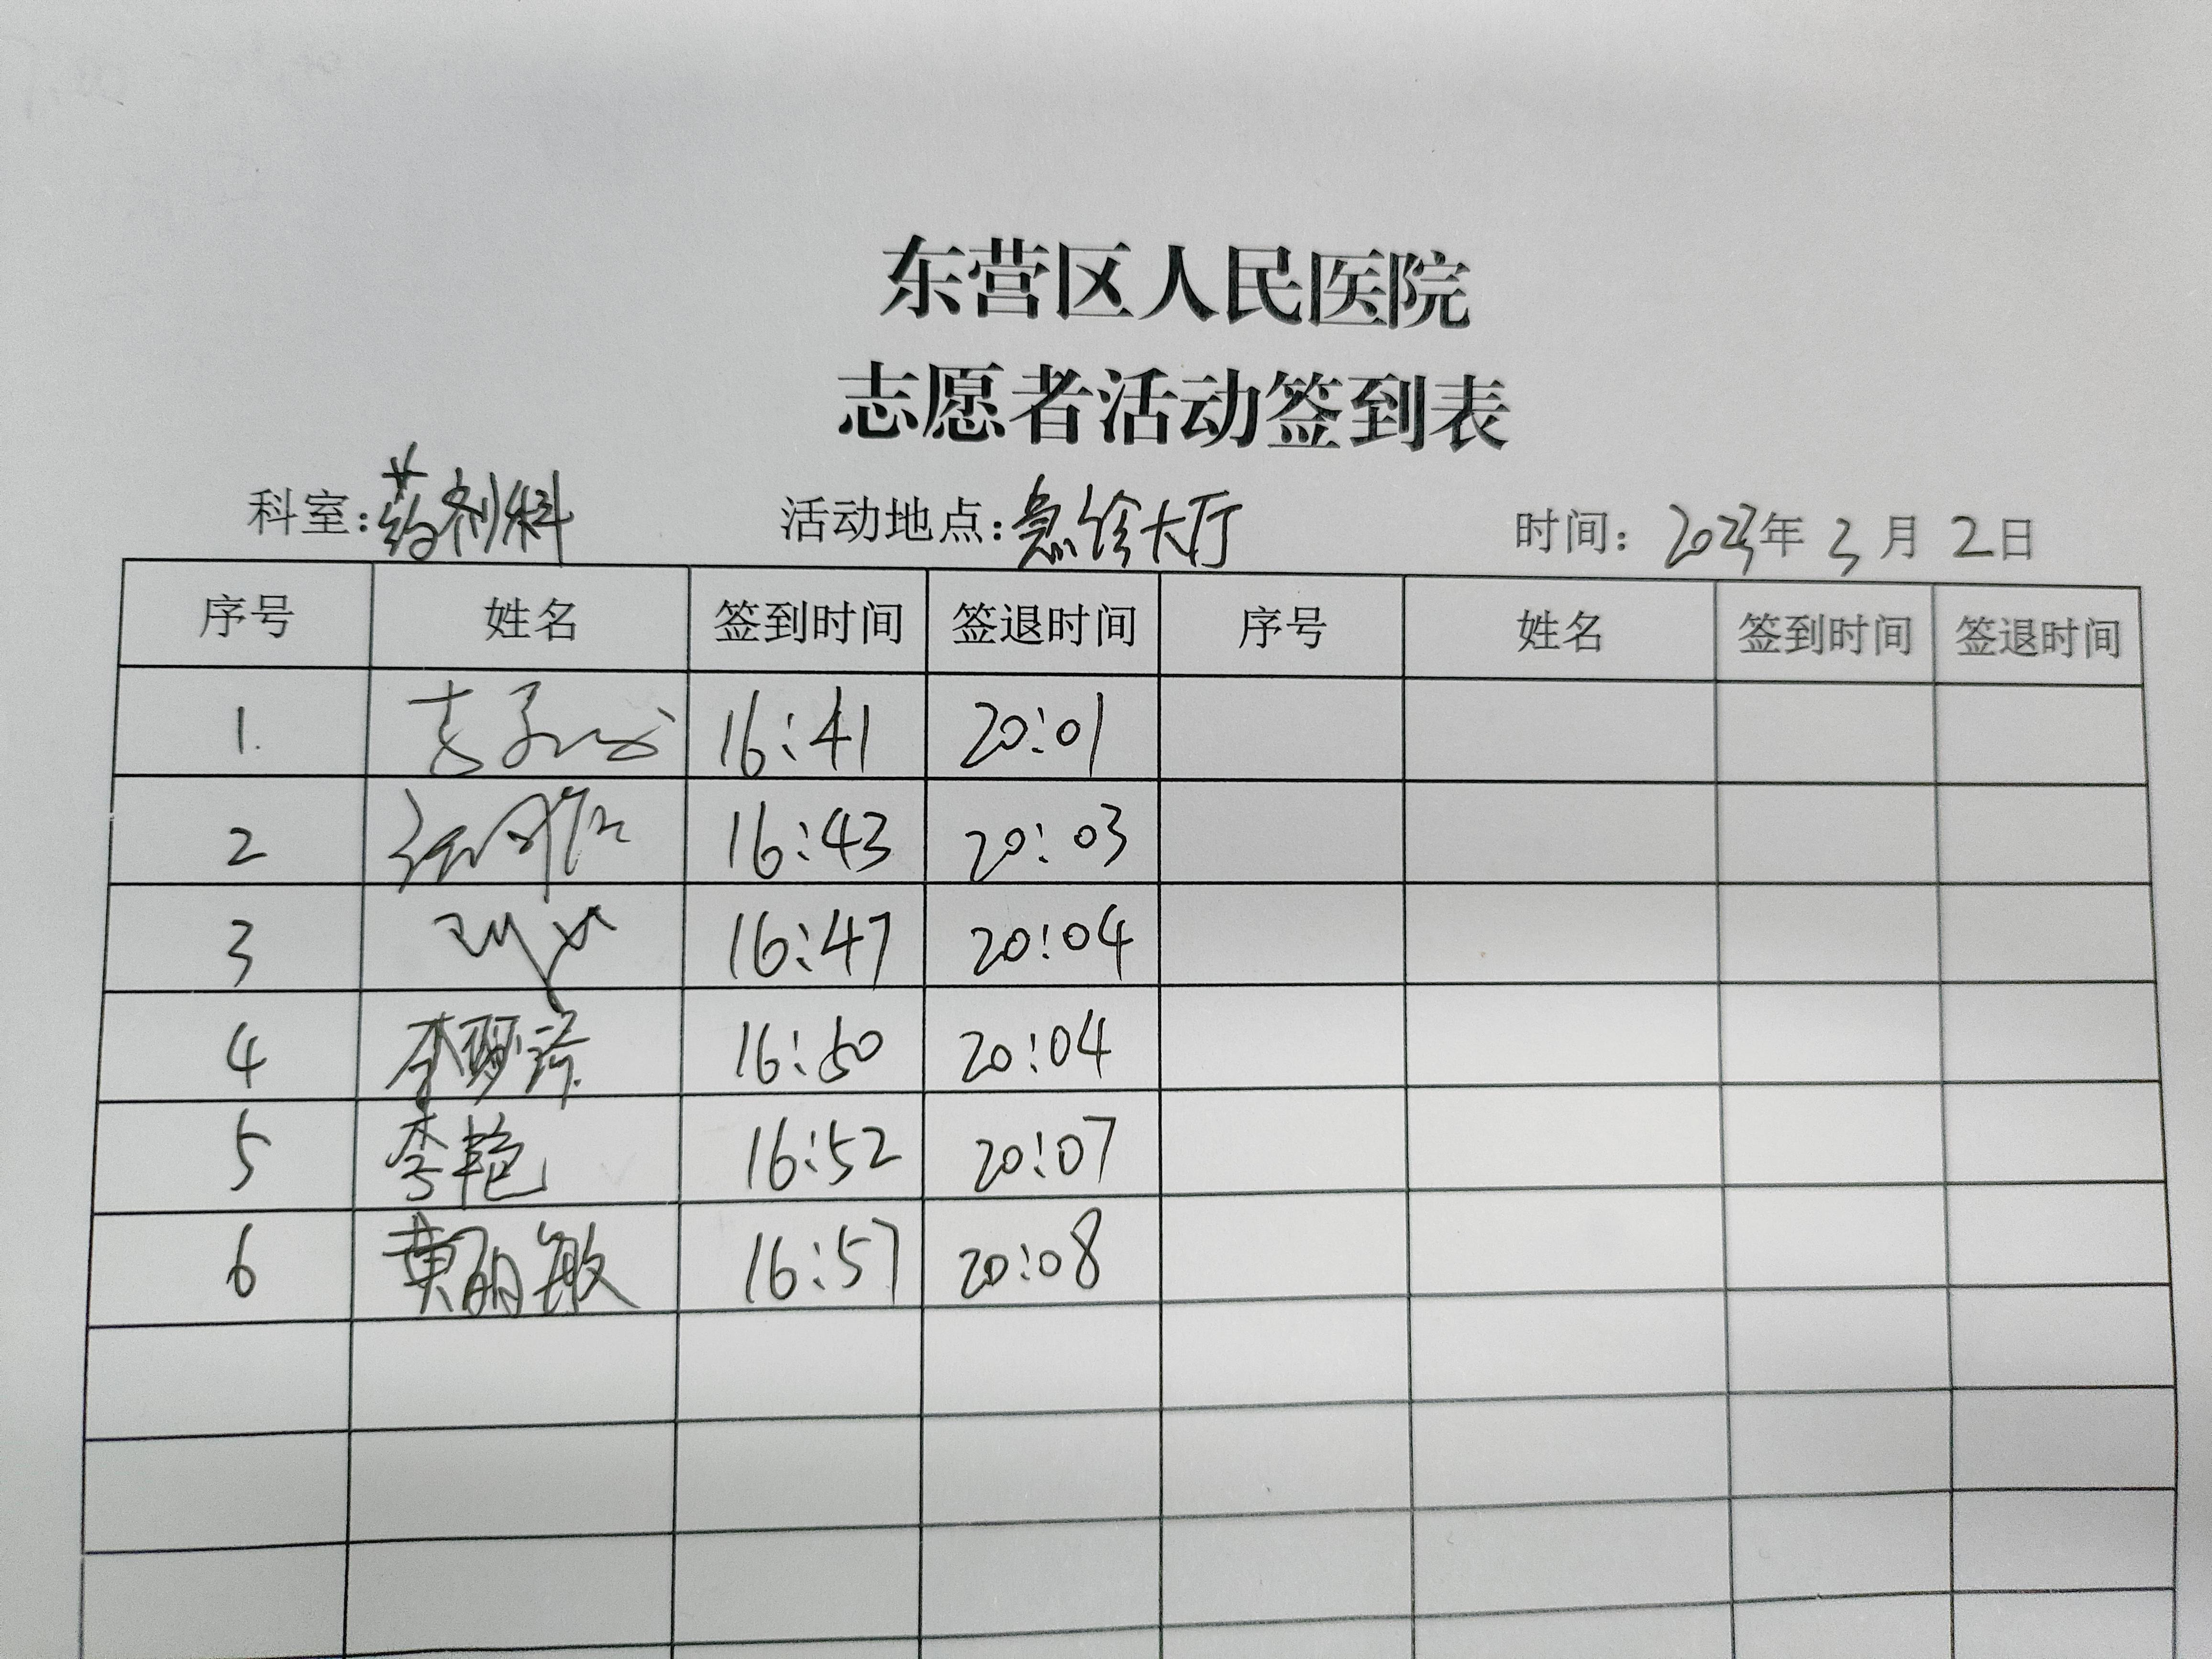 东营区人民医院
志愿者活动签到表
科室:药剂科 活动地点:急诊大厅 时间: 2023年3月2日
序号 姓名 签到时间 签退时间 序号 姓名 签到时间 签退时间
1. 16:41 20:01
2 16:43 20:03
3 16:47 20:04
4 李 16:50 20:04
5 李艳 16:52 20:07
6 黄丽敏 16:57 20:08